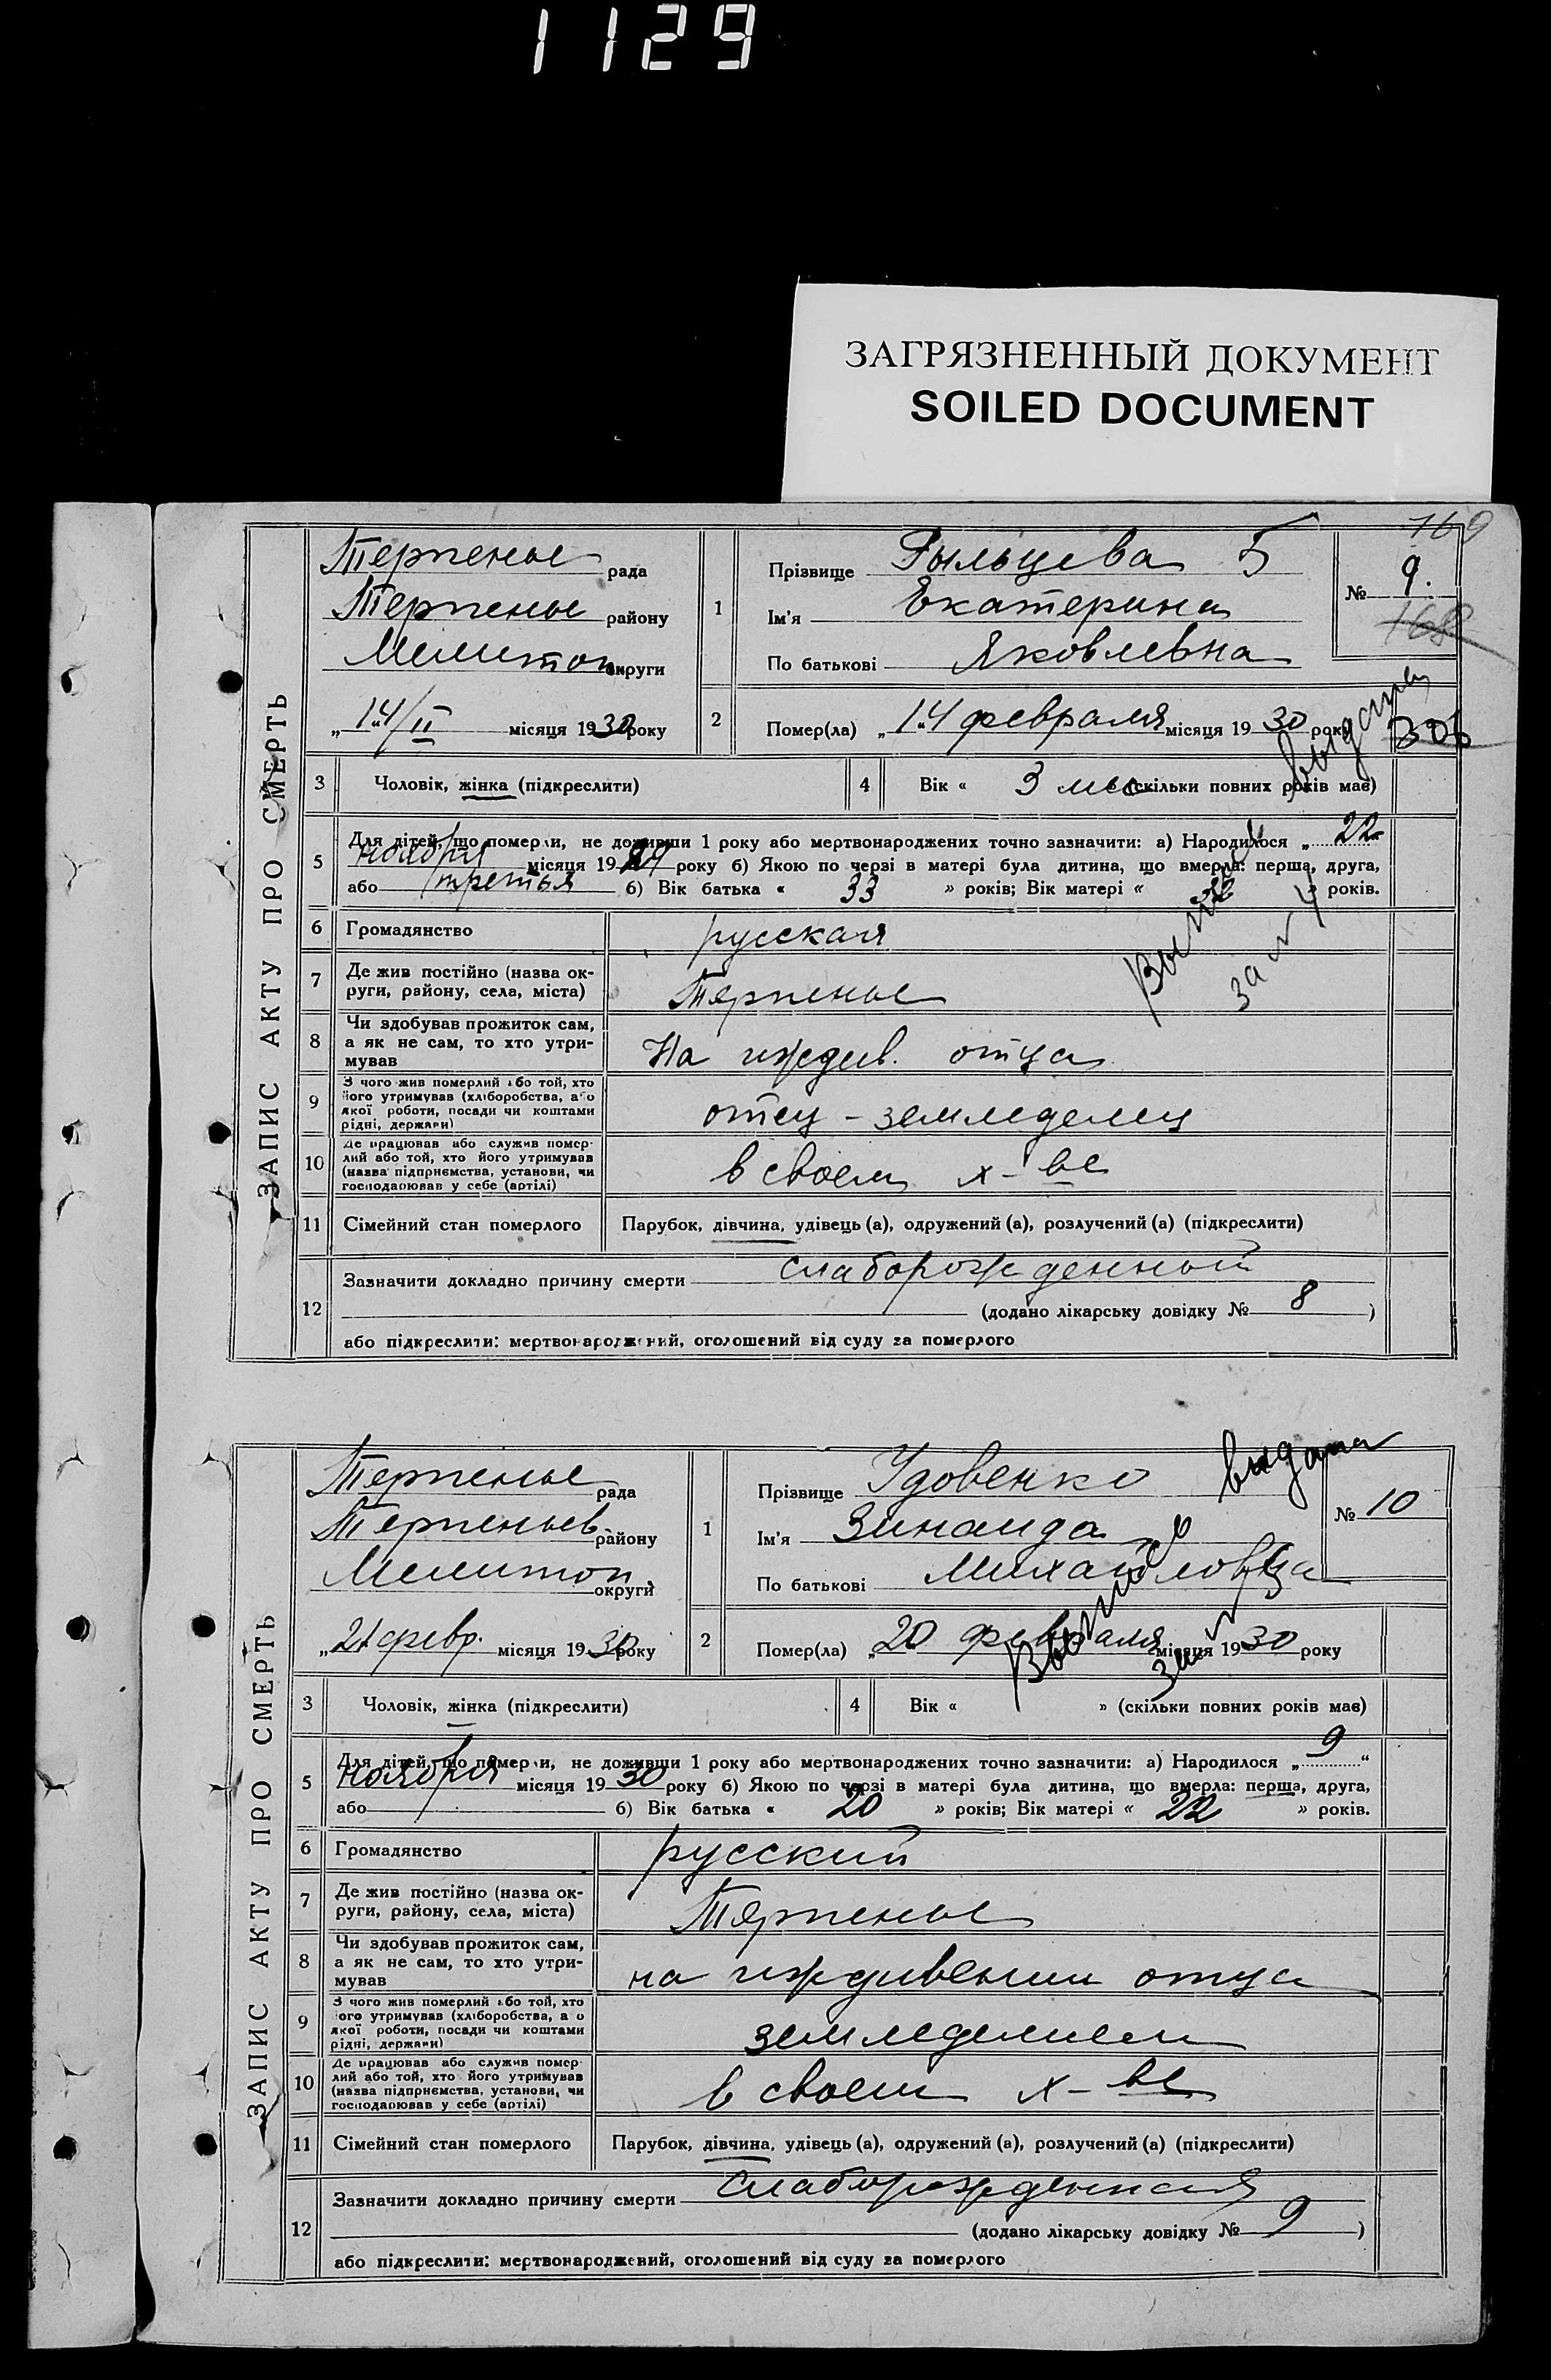 1129
ЗАГРЯЗНЕННЫЙ ДОКУМЕНТ
SOILED DOCUMENT
169
ЗАПИС АКТУ ПРО СМЕРТЬ
Терпенье рада
Терпенье району
Мелитоп. округи
„14/II місяця 1930 року
1
Прізвище Рыльцева Б
Ім'я Екатерина
По батькові Яковлевна
№ 9.
168
2
Помер(ла) „14 февраля місяця 1930 року
306
3 Чоловік, жінка (підкреслити)
4 Вік « 3 мес (скільки повних років має)
5 Для дітей, що померли, не доживши 1 року або мертвонароджених точно зазначити: а) Народилося „ 22
ноября місяця 1929 року б) Якою по черзі в матері була дитина, що вмерла: перша, друга,
або третья б) Вік батька « 33 » років; Вік матері « 32 » років.
6 Громадянство русская
7 Де жив постійно (назва ок-
руги, району, села, міста) Терпенье
8 Чи здобував прожиток сам,
а як не сам, то хто утри-
мував На иждив. отца
9 З чого жив померлий або той, хто
його утримував (хліборобства, або
якої роботи, посади чи коштами
рідні, держави) отец - земледелец
10 Де працював або служив помер-
лий або той, хто його утримував
(назва підприємства, установи, чи
господарював у себе (артілі) в своем х-ве
11 Сімейний стан померлого Парубок, дівчина, удівець (а), одружений (а), розлучений (а) (підкреслити)
12 Зазначити докладно причину смерти слаборожденный
(додано лікарську довідку № 8 )
або підкреслити: мертвонароджений, оголошений від суду за померлого
ЗАПИС АКТУ ПРО СМЕРТЬ
Терпенье рада
Терпеньев. району
Мелитоп. округи
„21 февр. місяця 1930 року
1
Прізвище Удовенко выдана
Ім'я Зинаида
По батькові Михайловна
№ 10
2
Помер(ла) „20 февраля місяця 1930 року
3 Чоловік, жінка (підкреслити)
4 Вік « » (скільки повних років має)
5 Для дітей, що померли, не доживши 1 року або мертвонароджених точно зазначити: а) Народилося „ 9 “
ноября місяця 1930 року б) Якою по черзі в матері була дитина, що вмерла: перша, друга,
або б) Вік батька « 20 » років; Вік матері « 22 » років.
6 Громадянство русский
7 Де жив постійно (назва ок-
руги, району, села, міста) Терпенье
8 Чи здобував прожиток сам,
а як не сам, то хто утри-
мував на иждивении отца
9 З чого жив померлий або той, хто
його утримував (хліборобства, або
якої роботи, посади чи коштами
рідні, держави) земледелием
10 Де працював або служив помер-
лий або той, хто його утримував
(назва підприємства, установи, чи
господарював у себе (артілі) в своем х-ве
11 Сімейний стан померлого Парубок, дівчина, удівець (а), одружений (а), розлучений (а) (підкреслити)
12 Зазначити докладно причину смерти слаборожденная
(додано лікарську довідку № 9 )
або підкреслити: мертвонароджений, оголошений від суду за померлого